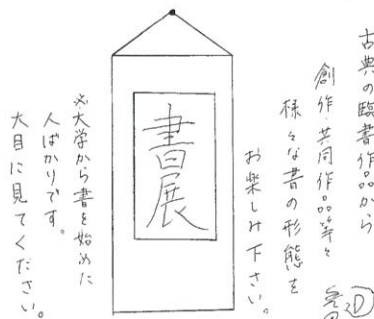 古典の臨書作品から
創作・共同作品等々
様々な書の形態を
お楽しみ下さい。
書展
※大学から書を始めた
人ばかりです。
大目に見てください。